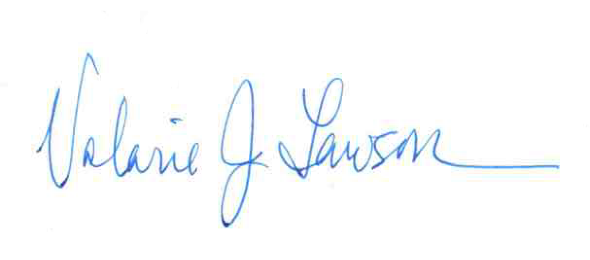 Valarie J. Lawson